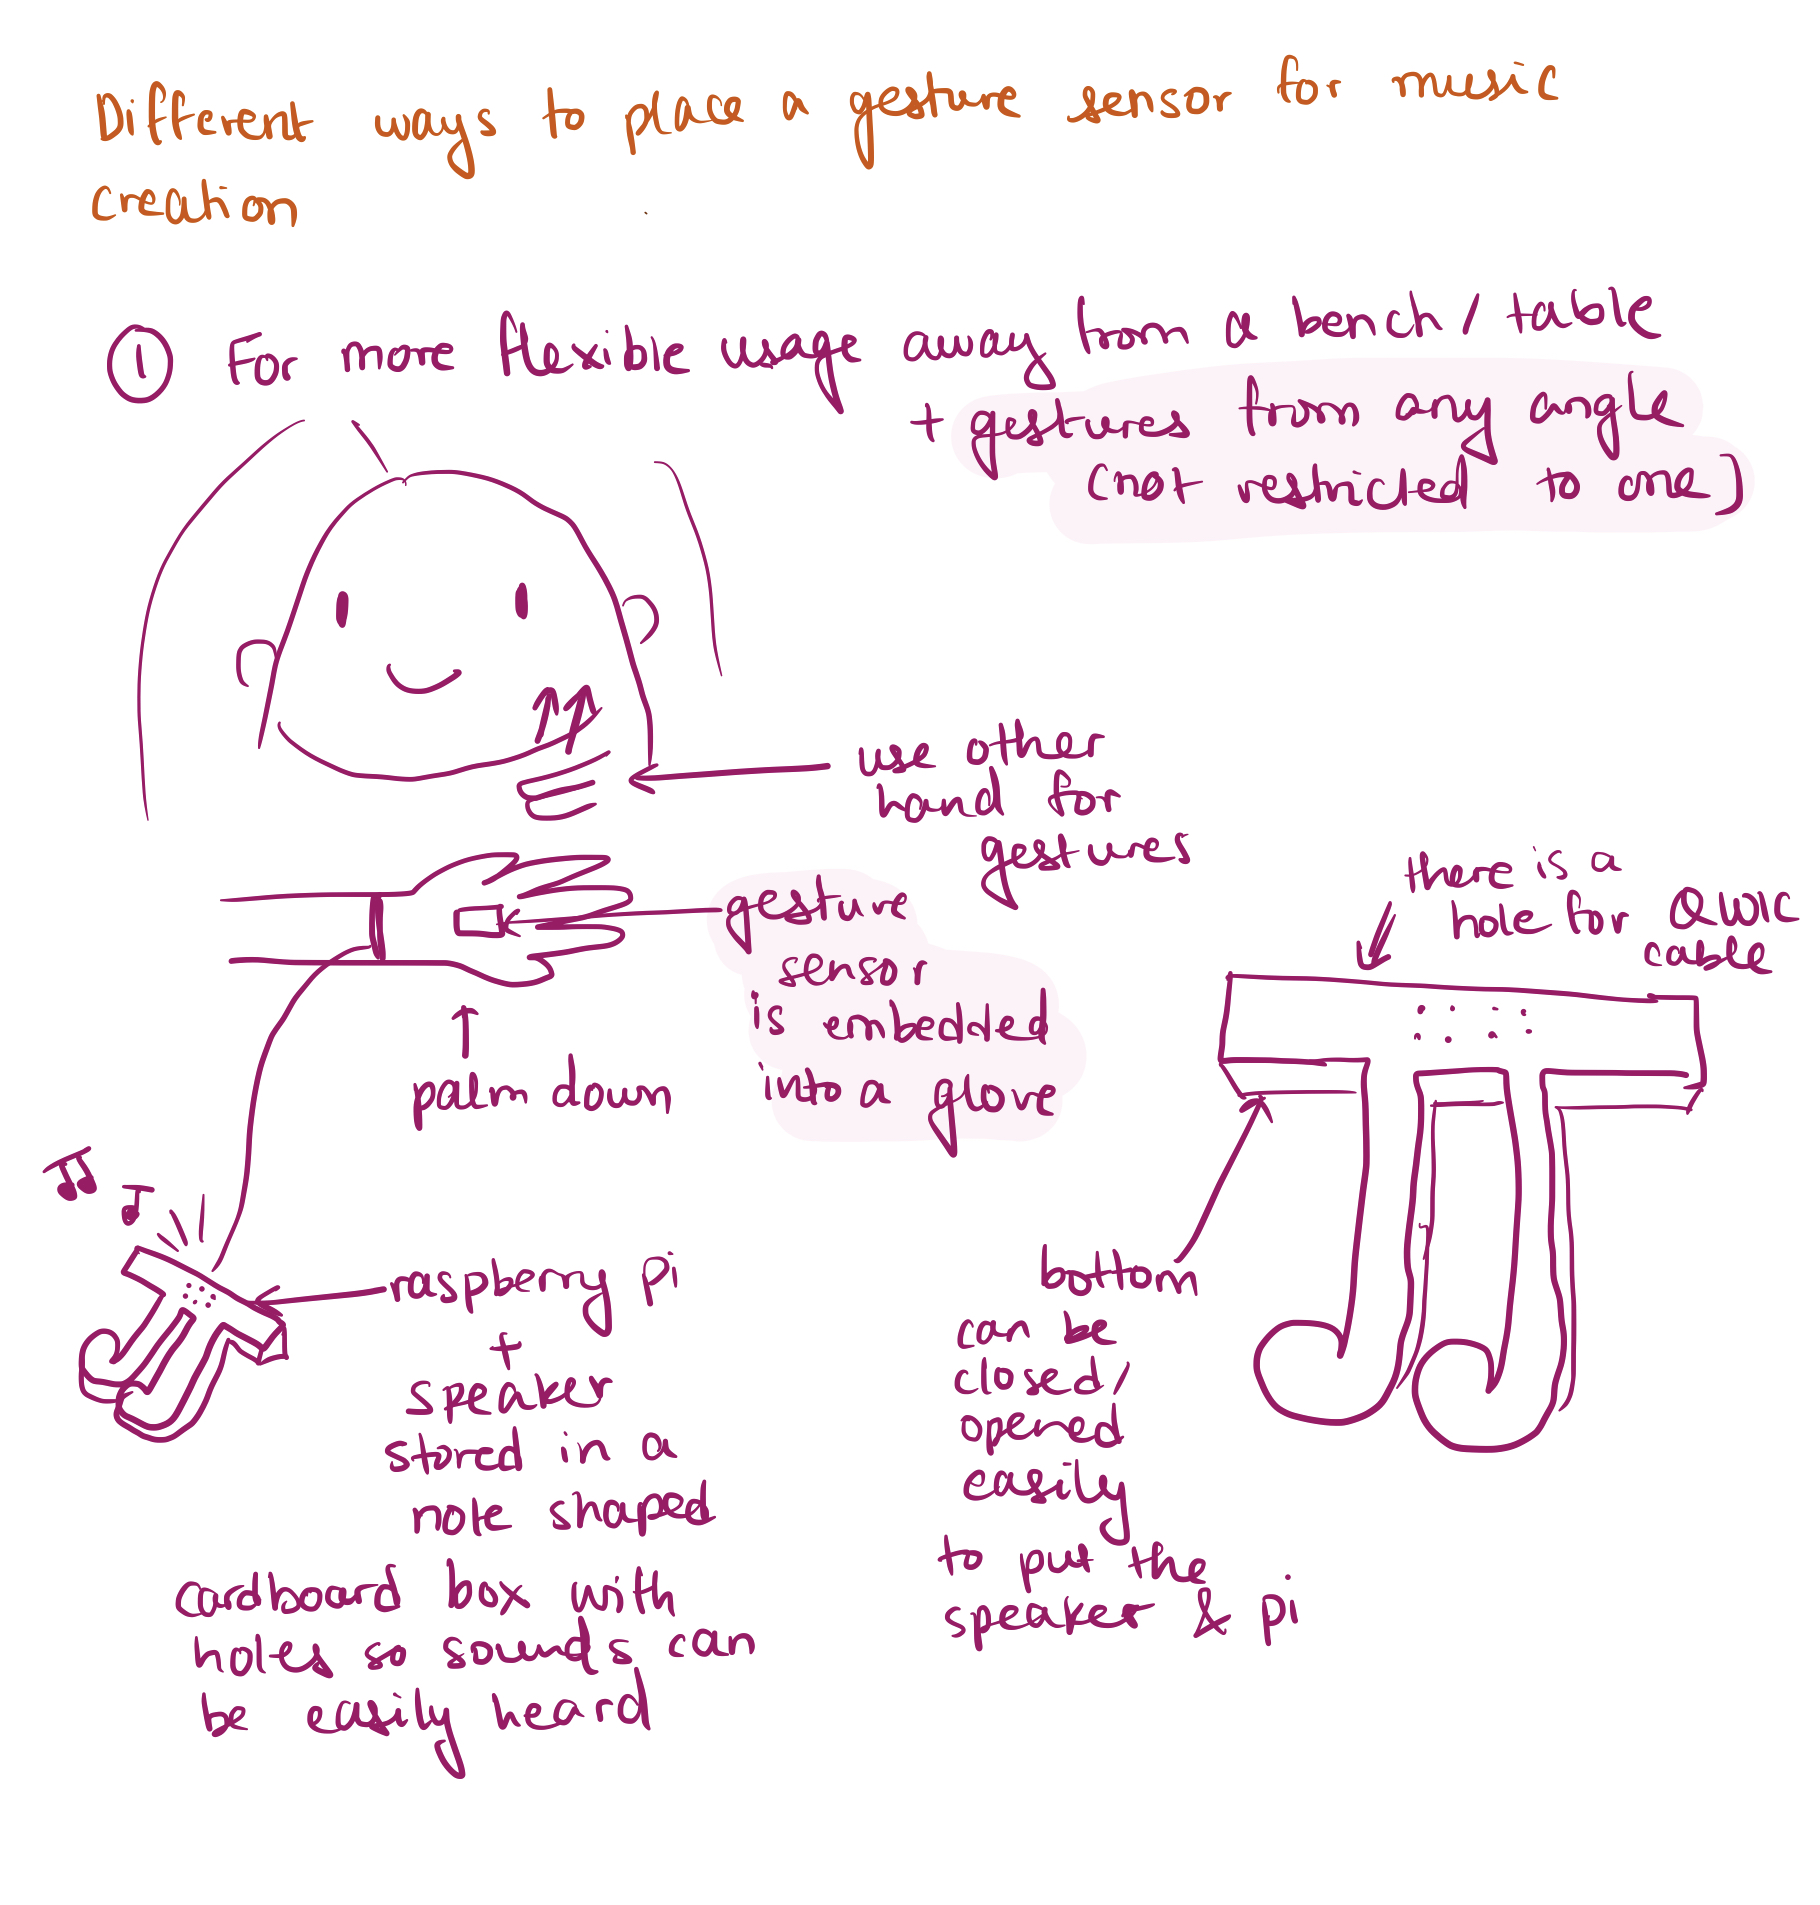 Different ways to place a gesture sensor for music
creation
1 For more flexible usage away from a bench / table
+ gestures from any angle
(not restricted to one)
use other
hand for
gestures
gesture
sensor
is embedded
into a glove
palm down
there is a
hole for QWIC
cable
raspberry pi
+
speaker
stored in a
note shaped
cardboard box with
holes so sounds can
be easily heard
bottom
can be
closed/
opened
easily
to put the
speaker & pi